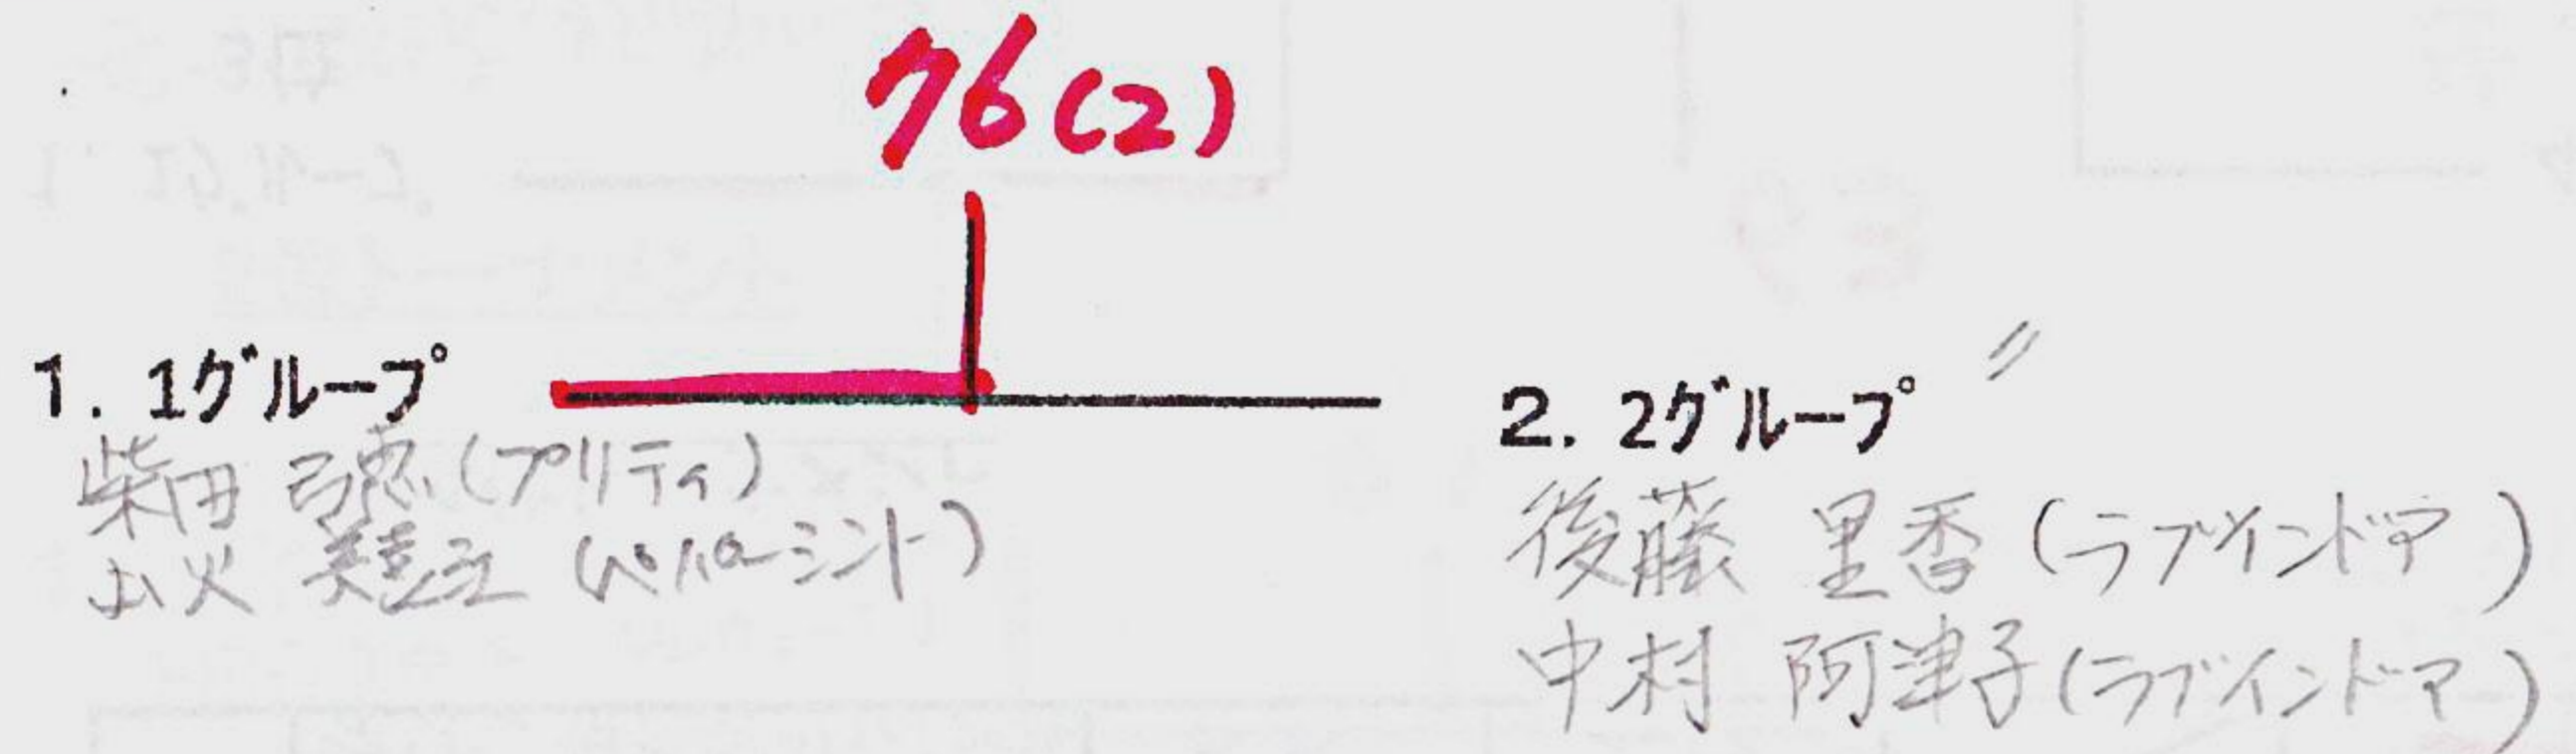 76(2)
1. 1グループ
柴田 弓恵(プリティ)
(ペパーミント)
2. 2グループ 〃
後藤 里香(ラブインドア)
中村 阿津子(ラブインドア)